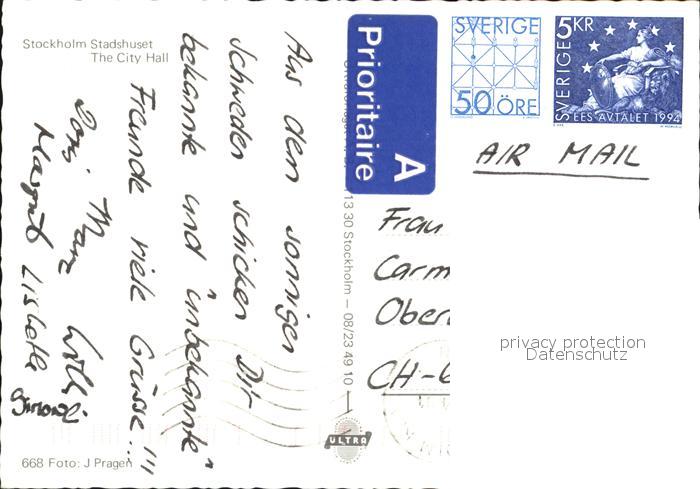 Stockholm Stadshuset
The City Hall
Aus dem sonnigen
Schweden schicken Dir
bekannte und "unbekannte"
Freunde viele Grüsse!!!
Margrit Lisbeth
668 Foto: J Pragen
Prioritaire
A
113 30 Stockholm – 08/23 49 10
ULTRA
SVERIGE
50 ÖRE
5KR
SVERIGE
EES-AVTALET 1994
AIR MAIL
Frau
Carm
Ober
CH-6
privacy protection
Datenschutz